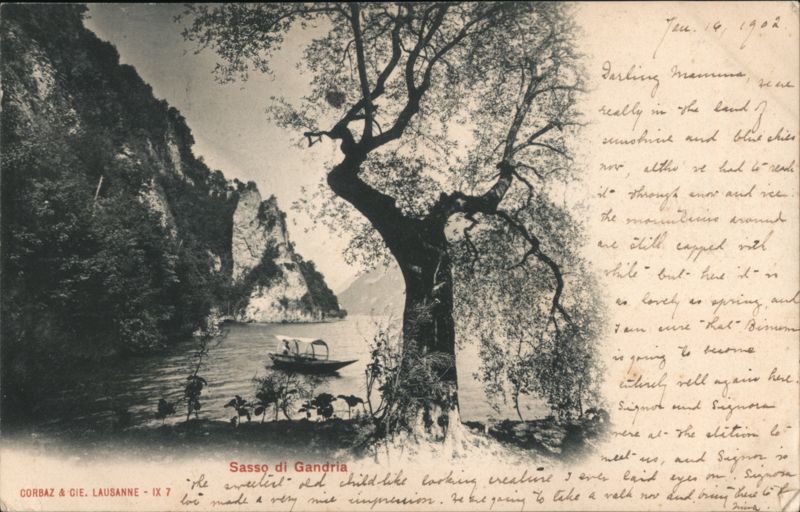 Jan. 16, 1902
Darling Mamma, we are
really in the land of
sunshine and blue skies
now, altho' we had to reach
it through snow and ice.
the mountains around
are still capped with
white but here it is
as lovely as spring, and
I am sure that
is going to become
entirely well again here.
Signor and Signora
were at the station to
meet us, and Signor is
the sweetest old childlike looking creature I ever laid eyes on. Signora
too made a very nice impression. We are going to take a walk now and bring these to
Sasso di Gandria
CORBAZ & CIE. LAUSANNE - IX 7